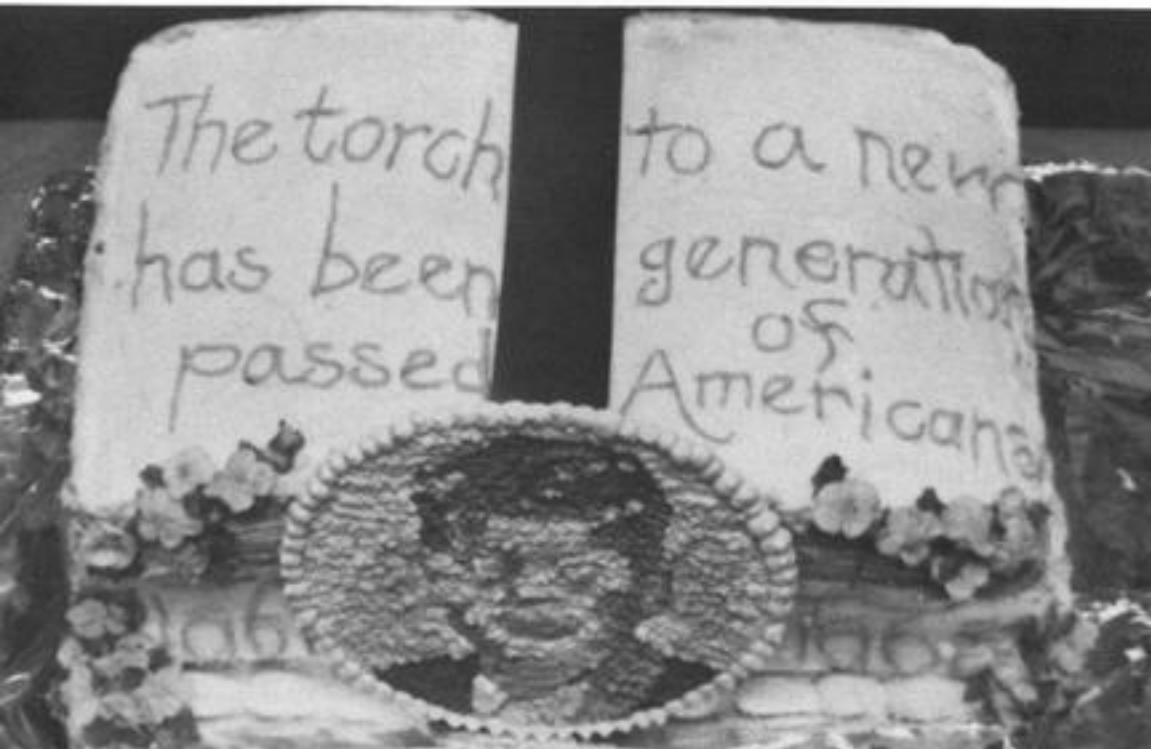 The torch
has been
passed
to a new
generation
of
Americans